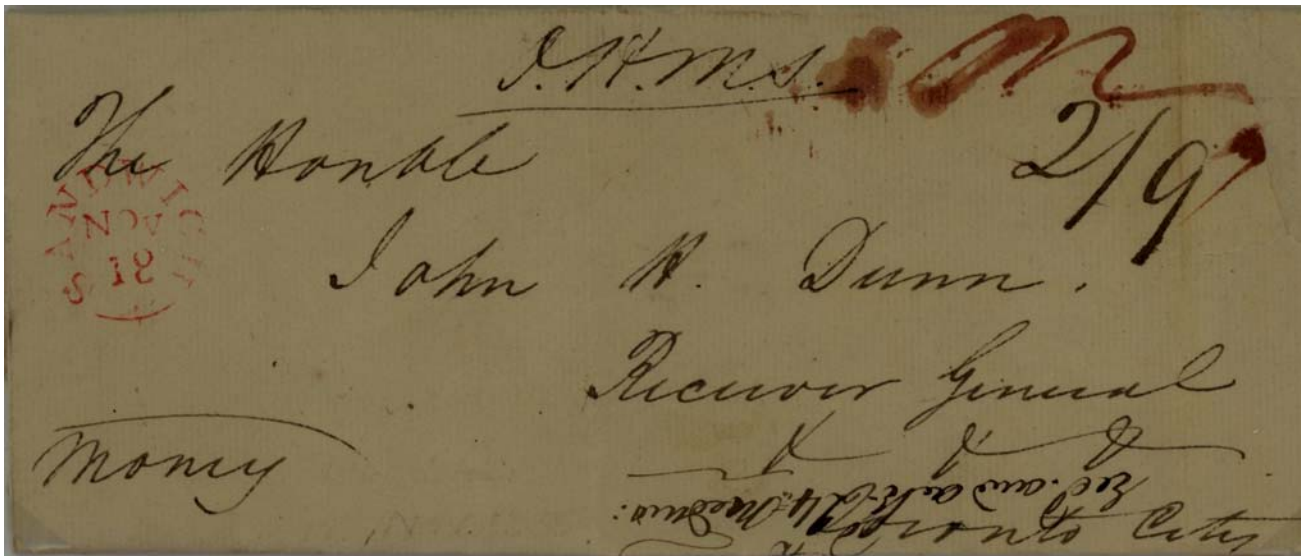 O.H.M.S.
The Honble
2/9
SANDWICH
NOV
18
John H. Dunn.
Receiver General
& & &
Money
Toronto City
Rec. and